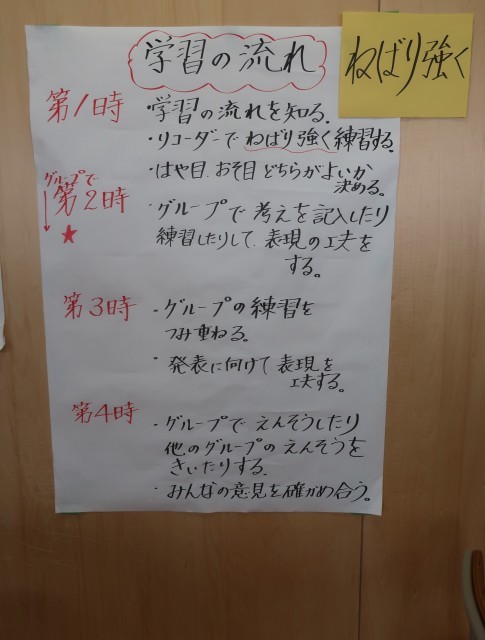 学習の流れ
ねばり強く
第1時
・学習の流れを知る.
・リコーダーでねばり強く練習する.
・はや目.おそ目どちらがよいか
決める。
グループで
第2時
★
・グループで考えを記入したり
練習したりして、表現の工夫を
する。
第3時
・グループの練習を
つみ重ねる。
・発表に向けて表現を
工夫する。
第4時
・グループでえんそうしたり
他のグループのえんそうを
きいたりする.
・みんなの意見を確かめ合う。